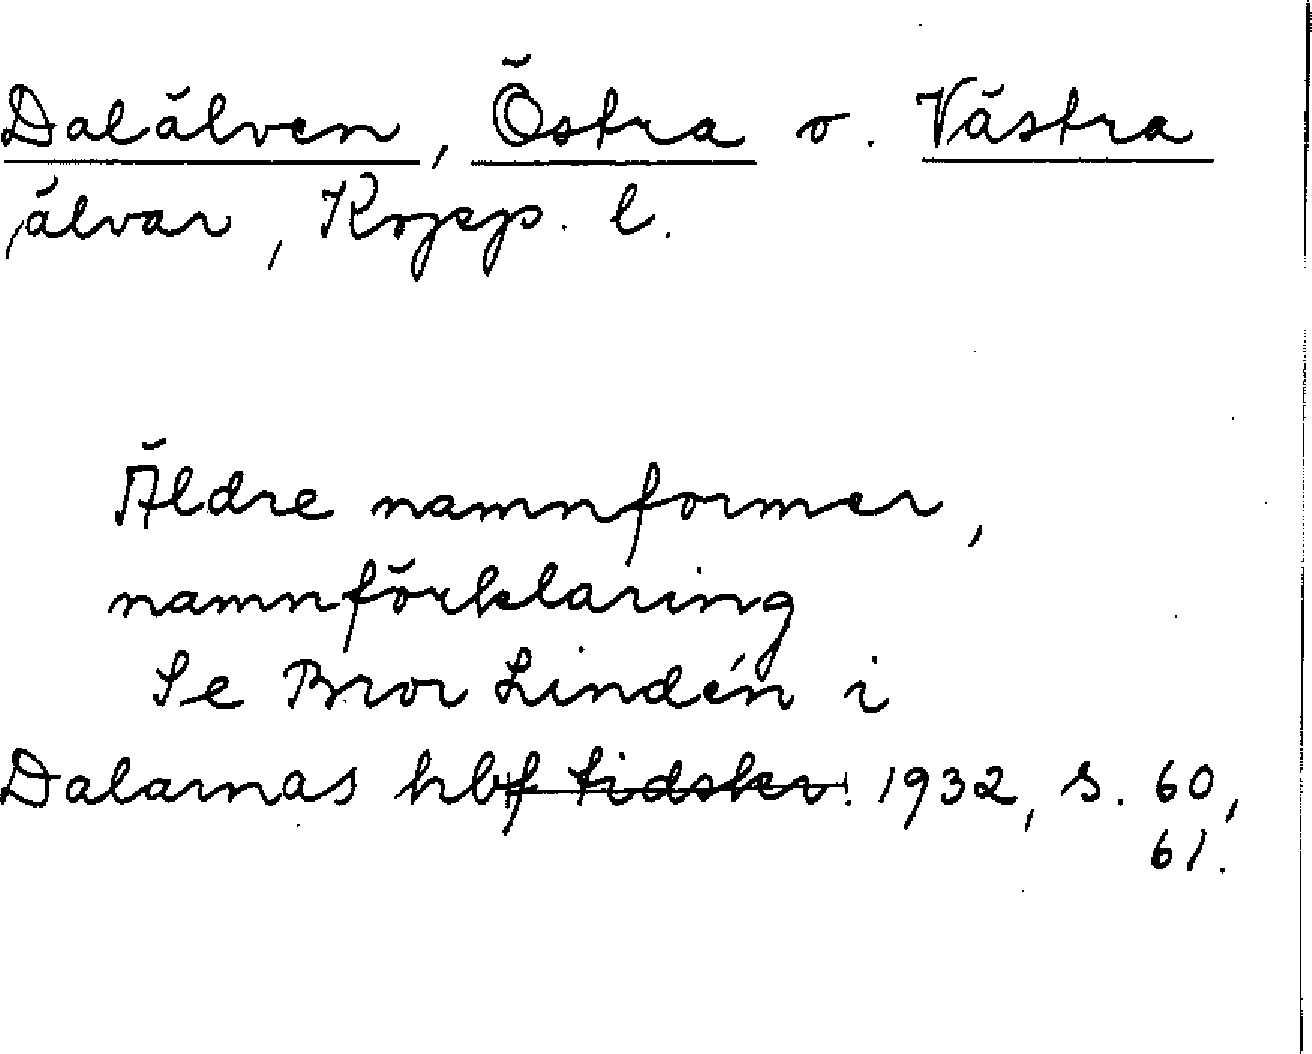 Dalälven, Östra o. Västra
älvar, Kopp. l.
Äldre namnformer,
namnförklaring
Se Bror Lindén i
Dalarnas hbf tidskr. 1932, s. 60,
61.